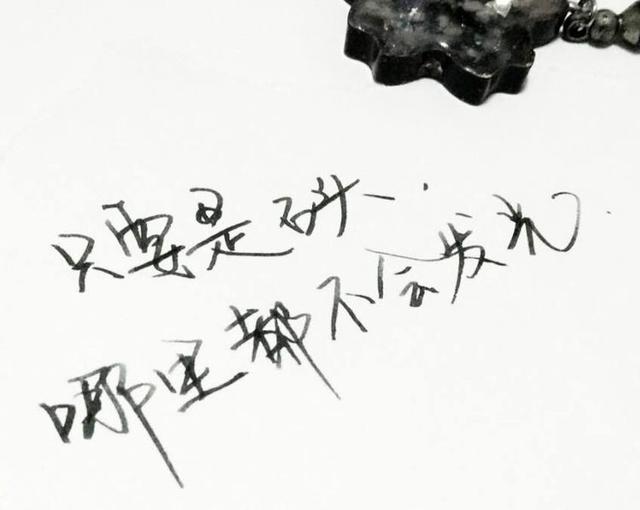 只要是石头
哪里都不会发光